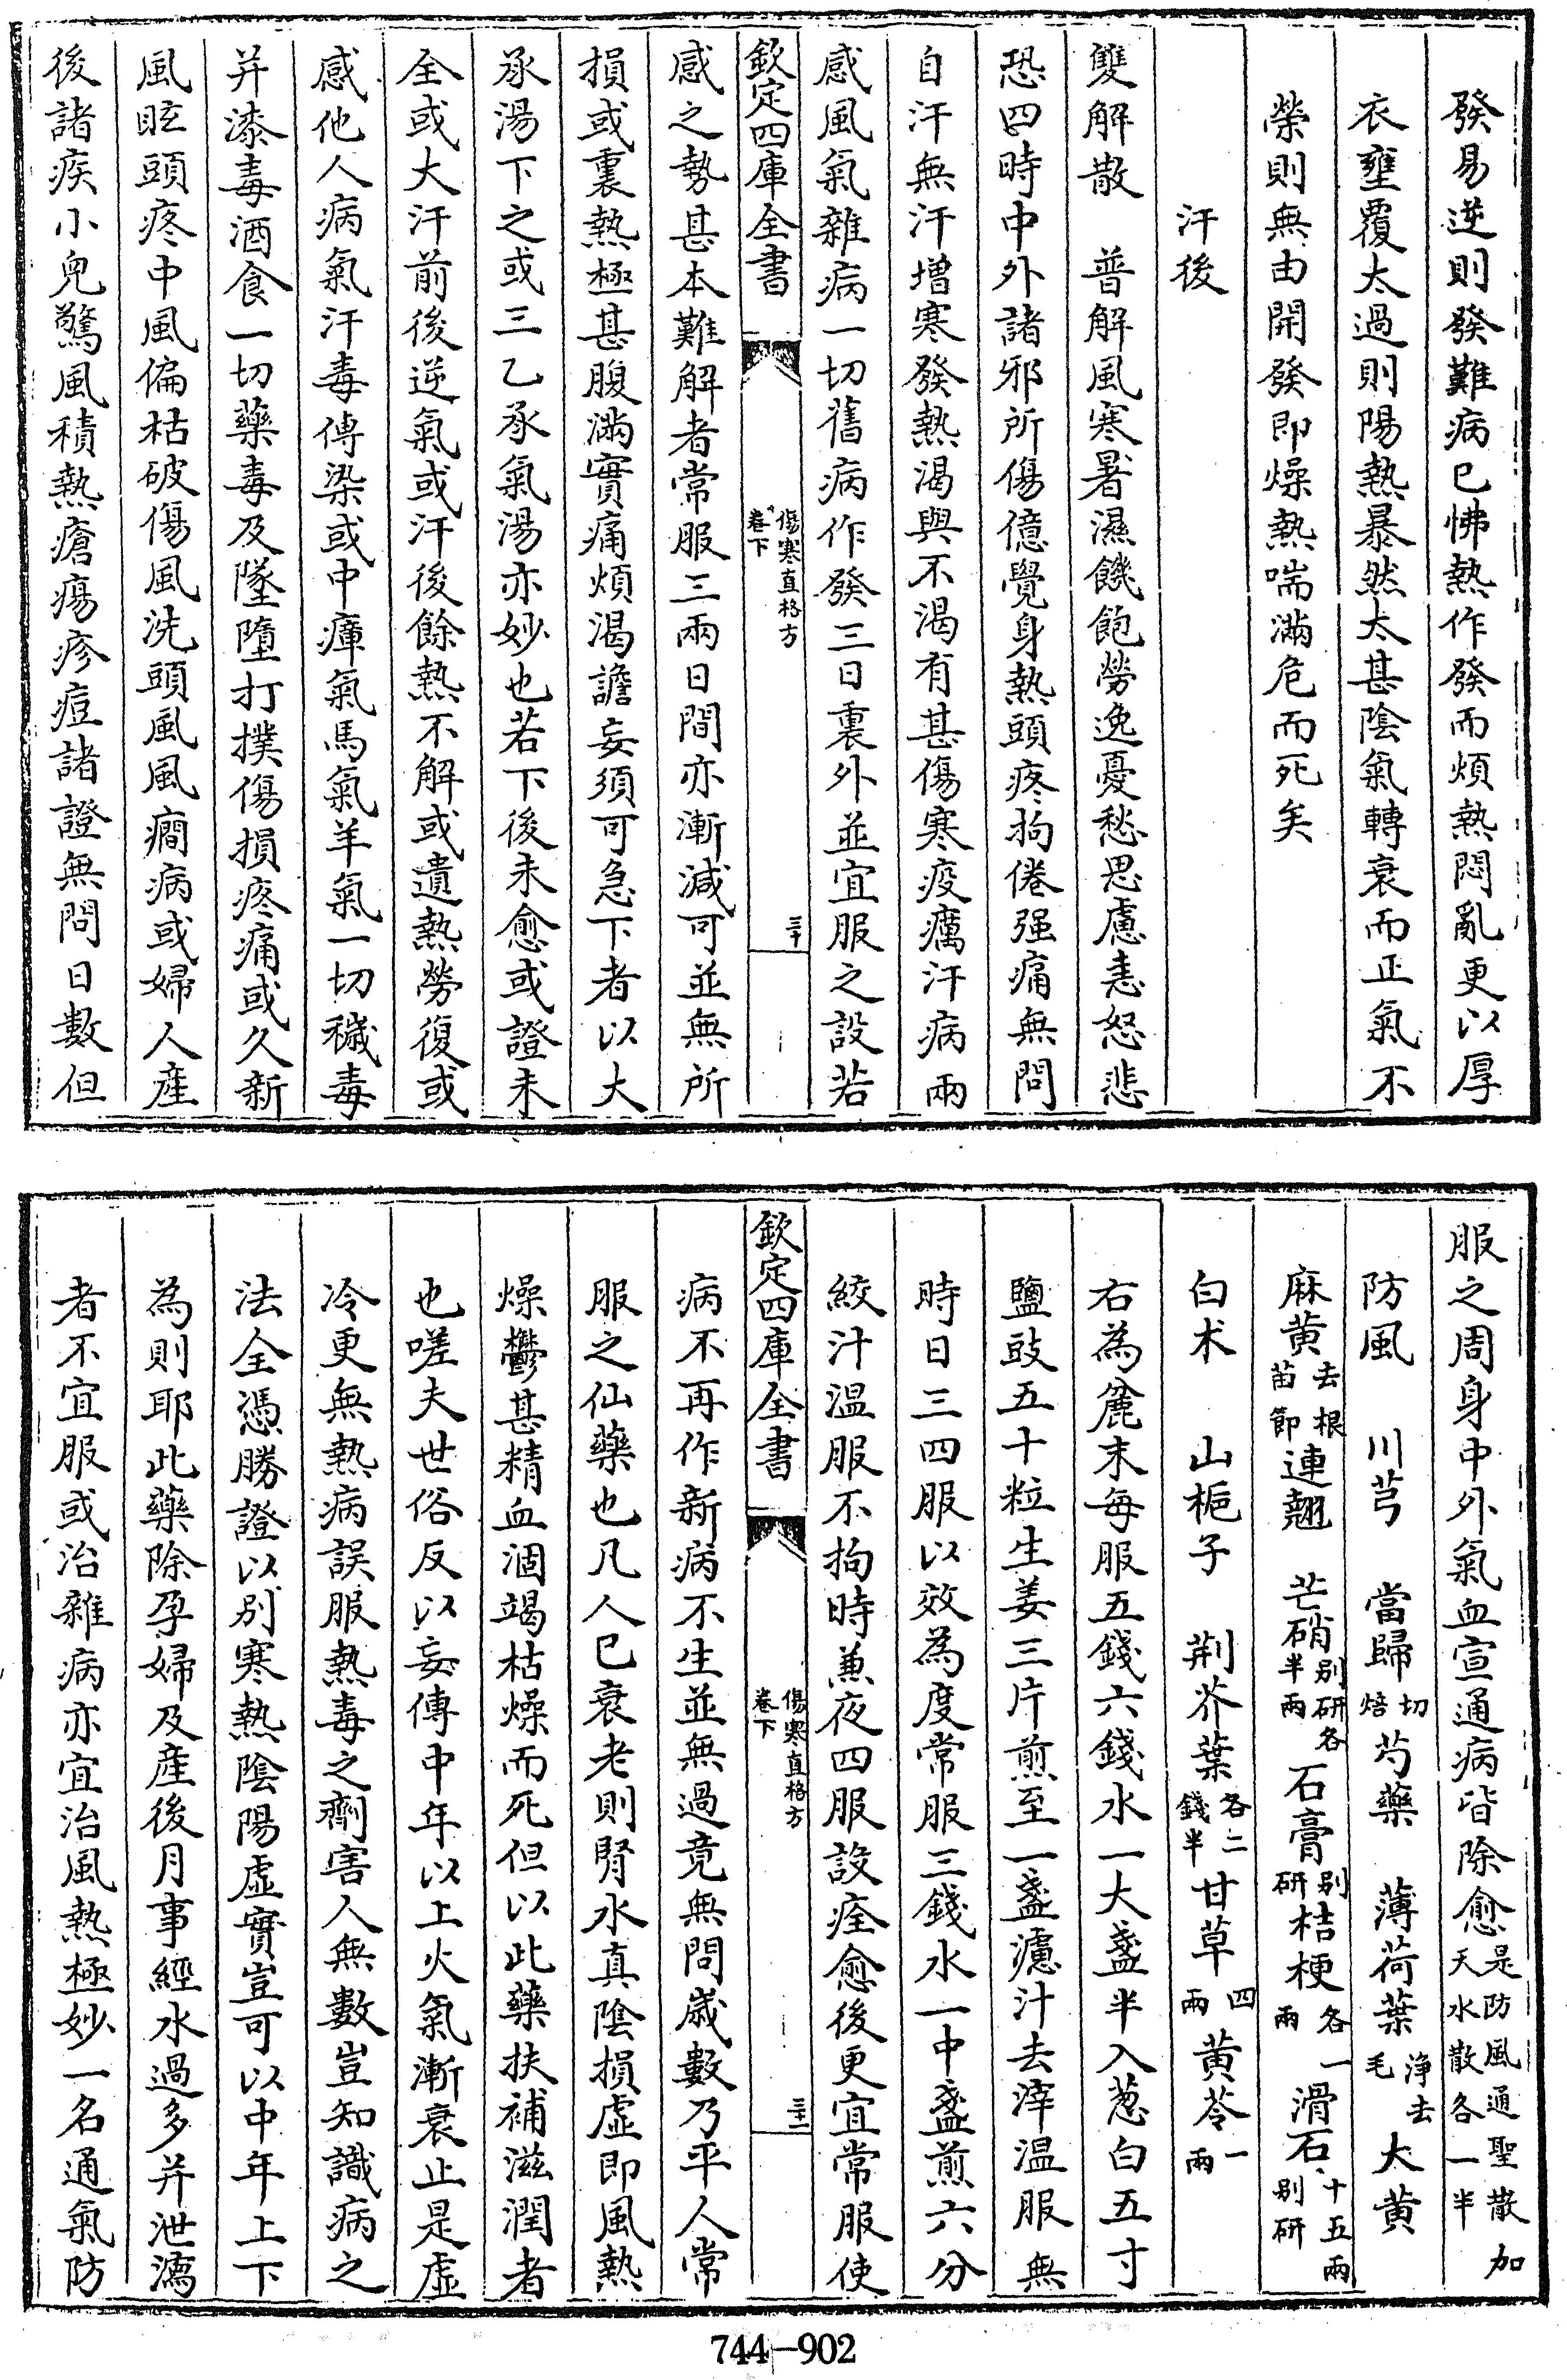 發易逆則發難病已怫熱作發而煩熱悶亂更以厚
衣壅覆太過則陽熱暴然太甚陰氣轉衰而正氣不
榮則無由開發即燥熱喘滿危而死矣
汗後
雙解散　普解風寒暑濕饑飽勞逸憂愁思慮恚怒悲
恐四時中外諸邪所傷億覺身熱頭疼拘倦强痛無問
自汗無汗增寒發熱渴與不渴有甚傷寒疫癘汗病兩
感風氣雜病一切舊病作發三日裏外並宜服之設若
欽定四庫全書
傷寒直格方
卷下
三十
感之勢甚本難解者常服三兩日間亦漸減可並無所
損或裏熱極甚腹滿實痛煩渴譫妄須可急下者以大
承湯下之或三乙承氣湯亦妙也若下後未愈或證未
全或大汗前後逆氣或汗後餘熱不解或遺熱勞復或
感他人病氣汗毒傳染或中瘴氣馬氣羊氣一切穢毒
并漆毒酒食一切藥毒及墜墮打撲傷損疼痛或久新
風眩頭疼中風偏枯破傷風洗頭風風癎病或婦人産
後諸疾小兒驚風積熱瘡瘍疹痘諸證無問日數但
服之周身中外氣血宣通病皆除愈是防風通聖散加
天水散各一半
防風　川芎　當歸切焙芍藥　薄荷葉淨去毛大黄
麻黄去根苗節連翹　芒硝别研各半兩石膏别研桔梗各一兩滑石十五兩别研
白术　山梔子　荆芥葉各二錢半甘草四兩黄芩一兩
右為麄末每服五錢六錢水一大盞半入葱白五寸
鹽豉五十粒生姜三片煎至一盞濾汁去滓温服無
時日三四服以效為度常服三錢水一中盞煎六分
絞汁温服不拘時兼夜四服設痊愈後更宜常服使
欽定四庫全書
傷寒直格方
卷下
三十一
病不再作新病不生並無過竟無問歲數乃平人常
服之仙藥也凡人已衰老則腎水真陰損虚即風熱
燥鬱甚精血涸竭枯燥而死但以此藥扶補滋潤者
也嗟夫世俗反以妄傳中年以上火氣漸衰止是虚
冷更無熱病誤服熱毒之劑害人無數豈知識病之
法全憑勝證以别寒熱陰陽虚實豈可以中年上下
為則耶此藥除孕婦及産後月事經水過多并泄瀉
者不宜服或治雜病亦宜治風熱極妙一名通氣防
744-902